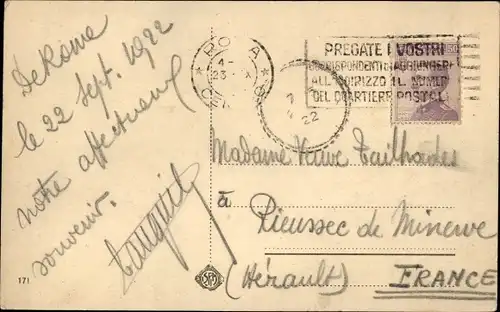 De Rome
le 22 Sept. 1922
notre affectueux
souvenir.
ROMA
4-
23
PREGATE I VOSTRI
CORRISPONDENTI AGGIUNGERE
ALL'INDIRIZZO IL NUMERO
DEL QUARTIERE POSTALE
22
Madame Veuve Tailhades
à
Rieussec de Minerve
(Hérault) FRANCE
171